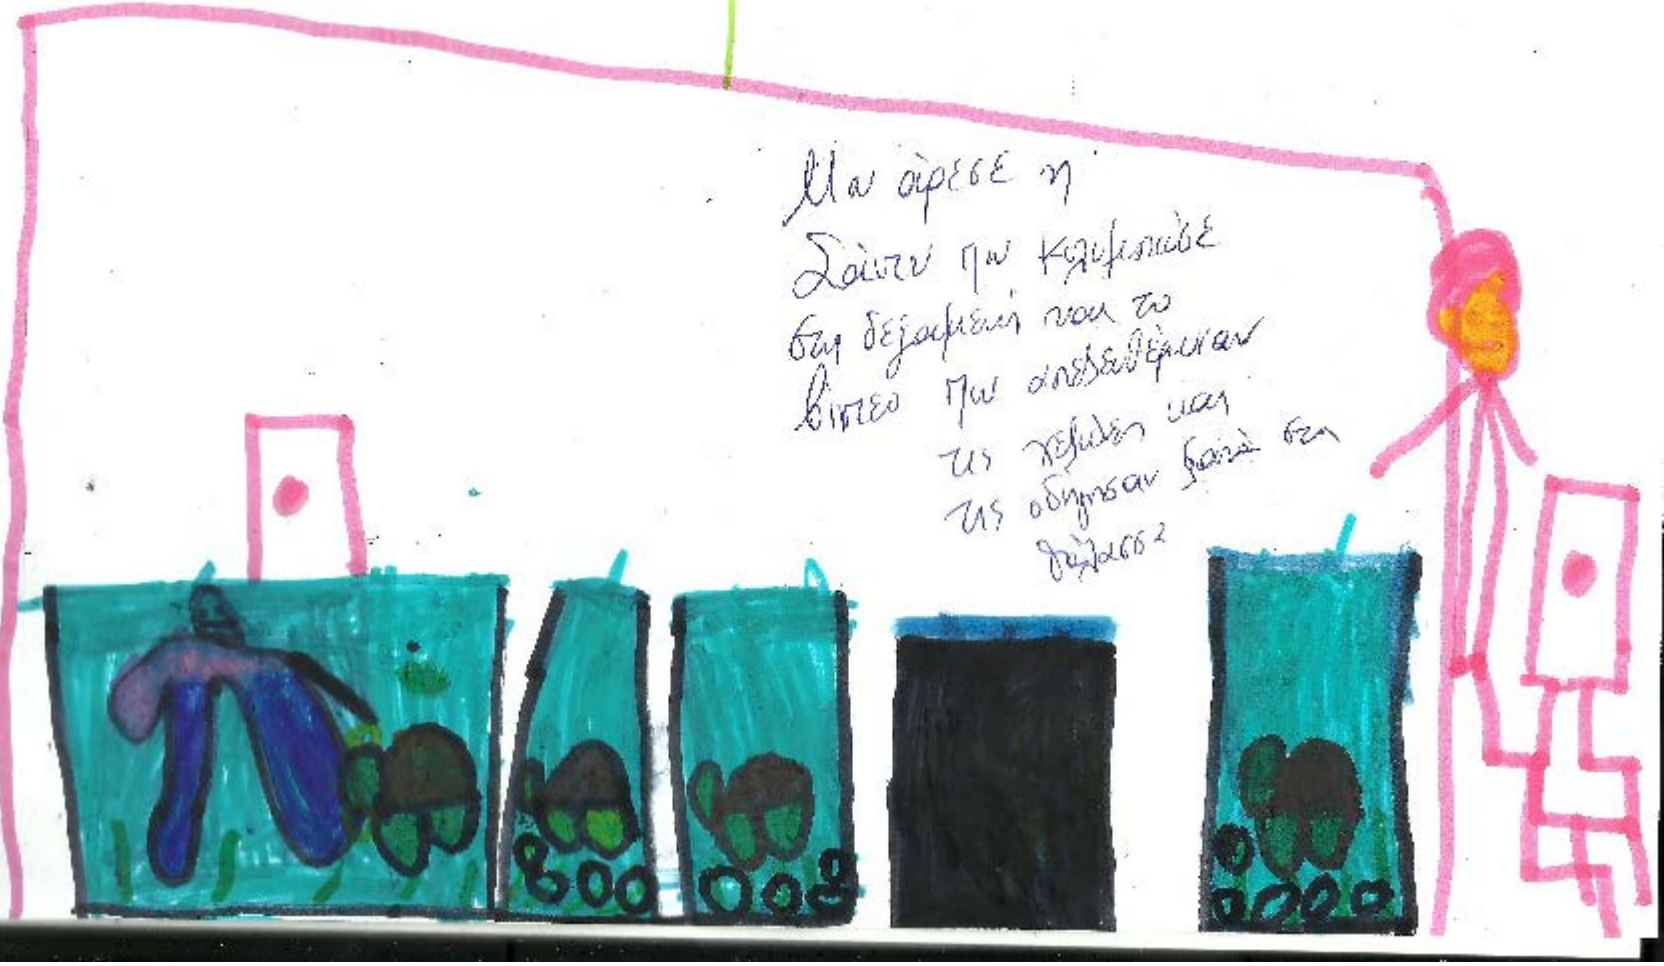 Μου άρεσε η
Σάντυ που κολυμπούσε
στη δεξαμενή και το
βίντεο που απελευθέρωσαν
τις χελώνες και
τις οδήγησαν ξανά στη
θάλασσα